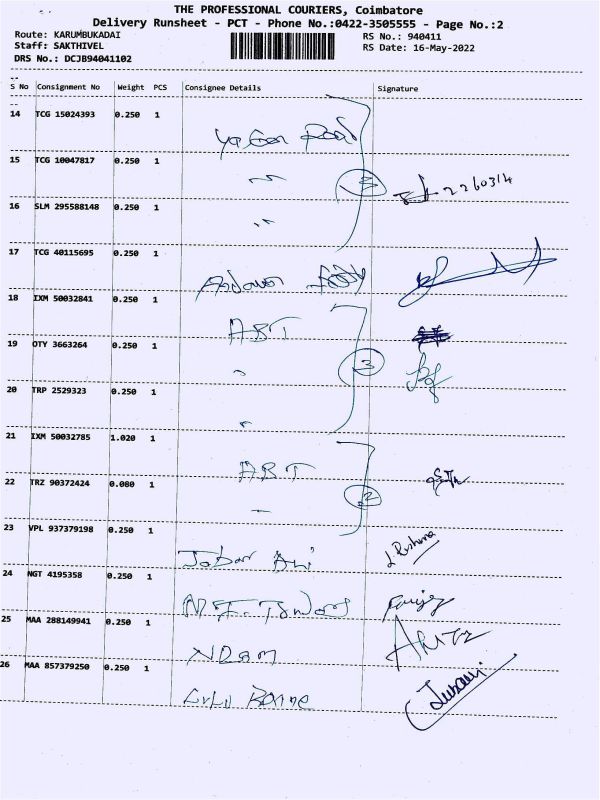 THE PROFESSIONAL COURIERS, Coimbatore
Delivery Runsheet - PCT - Phone No.:0422-3505555 - Page No.:2
Route: KARUMBUKADAI RS No.: 940411
Staff: SAKTHIVEL RS Date: 16-May-2022
DRS No.: DCJB94041102
S No Consignment No Weight PCS Consignee Details Signature
14 TCG 15024393 0.250 1
15 TCG 10047817 0.250 1
3 2260314
16 SLM 295588148 0.250 1
17 TCG 40115695 0.250 1
18 IXM 50032841 0.250 1
ABT
19 OTY 3663264 0.250 1
3
20 TRP 2529323 0.250 1
21 IXM 50032785 1.020 1
ABT
22 TRZ 90372424 0.080 1
2
23 VPL 937379198 0.250 1
24 NGT 4195358 0.250 1
25 MAA 288149941 0.250 1
26 MAA 857379250 0.250 1